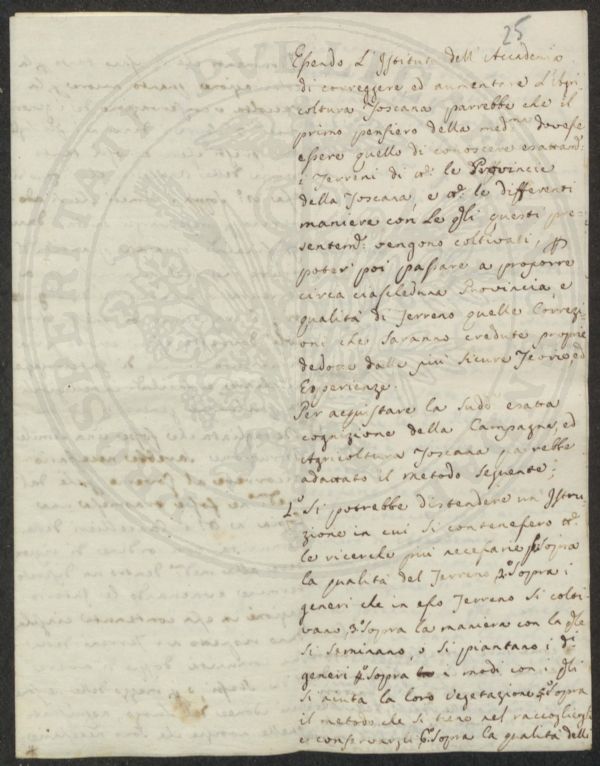 25
Essendo L'Istituto dell'Accademia
di correggere ed aumentare L'Agri-
coltura Toscana parrebbe che il
primo pensiero della med:ma dovesse
essere quello di conoscere esattam:
i Terreni di le Provincie
della Toscana, e le differenti
maniere con Le qli questi pre-
sentem: vengono coltivati, p
poter poi passare a proporre
circa ciascheduna Provincia, e
qualità di Terreno quelle Correzi-
oni che saranno credute proprie
dedotte dalle più sicure Teorie, ed
Esperienze.
Per acquistare la sudd esatta
cognizione della Campagna, ed
Agricoltura Toscana parrebbe
adattato il metodo seguente;
1.o Si potrebbe distendere un Istru-
zione in cui si contenessero
le ricerche più necessarie p.o Sopra
la qualità del Terreno 2.o Sopra i
generi che in esso Terreno si colti-
vano, 3.o Sopra la maniera con la qle
si seminano, o si piantano i di
generi 4.o Sopra i modi con i qli
si aiuta la loro Vegetazione 5.o Sopra
il metodo che si tiene nel raccoglierli
e conservarli 6.o Sopra la qualità delli
PVBLICAE
PROSPERITATI